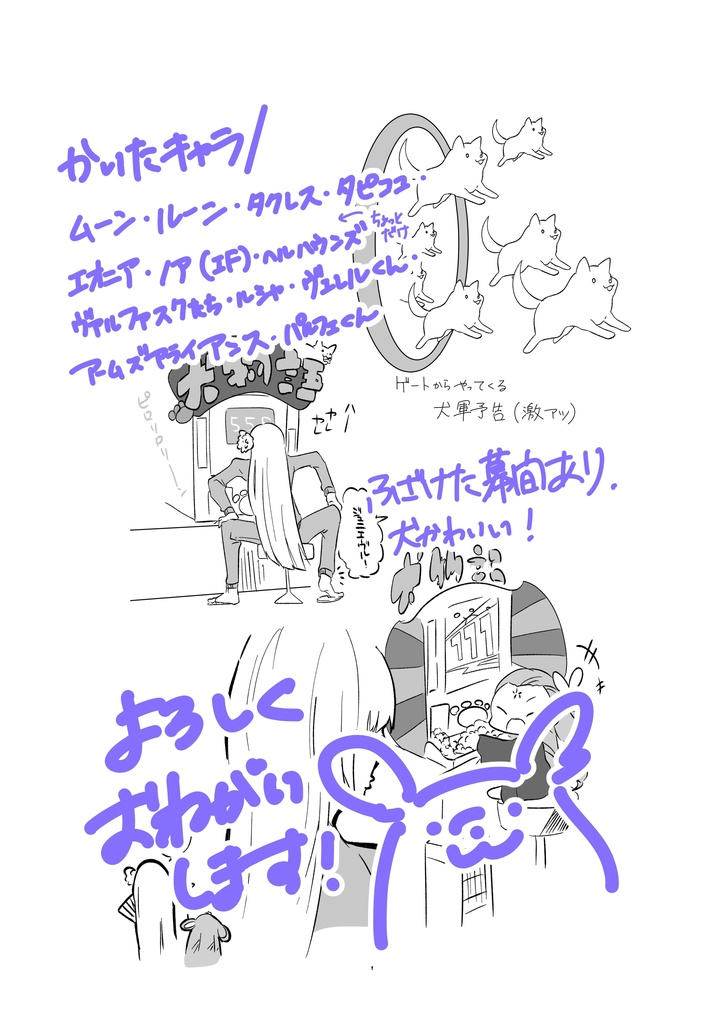 かいたキャラ/
ムーン・ルーン・タクレス・タピココ・
エオニア・ノア(EF)・ヘルハウンズ
←ちょっと
だけ
ヴァルファスクたち・ルシャ・ヴェレルくん・
アームズアライアンス・パルフェくん
犬物語
ピロリロリーン
558
ゲートからやってくる
犬軍予告(激アツ)
ふざけた幕間あり、
犬かわいい!
犬物語
777
よろしく
おねがい
します!